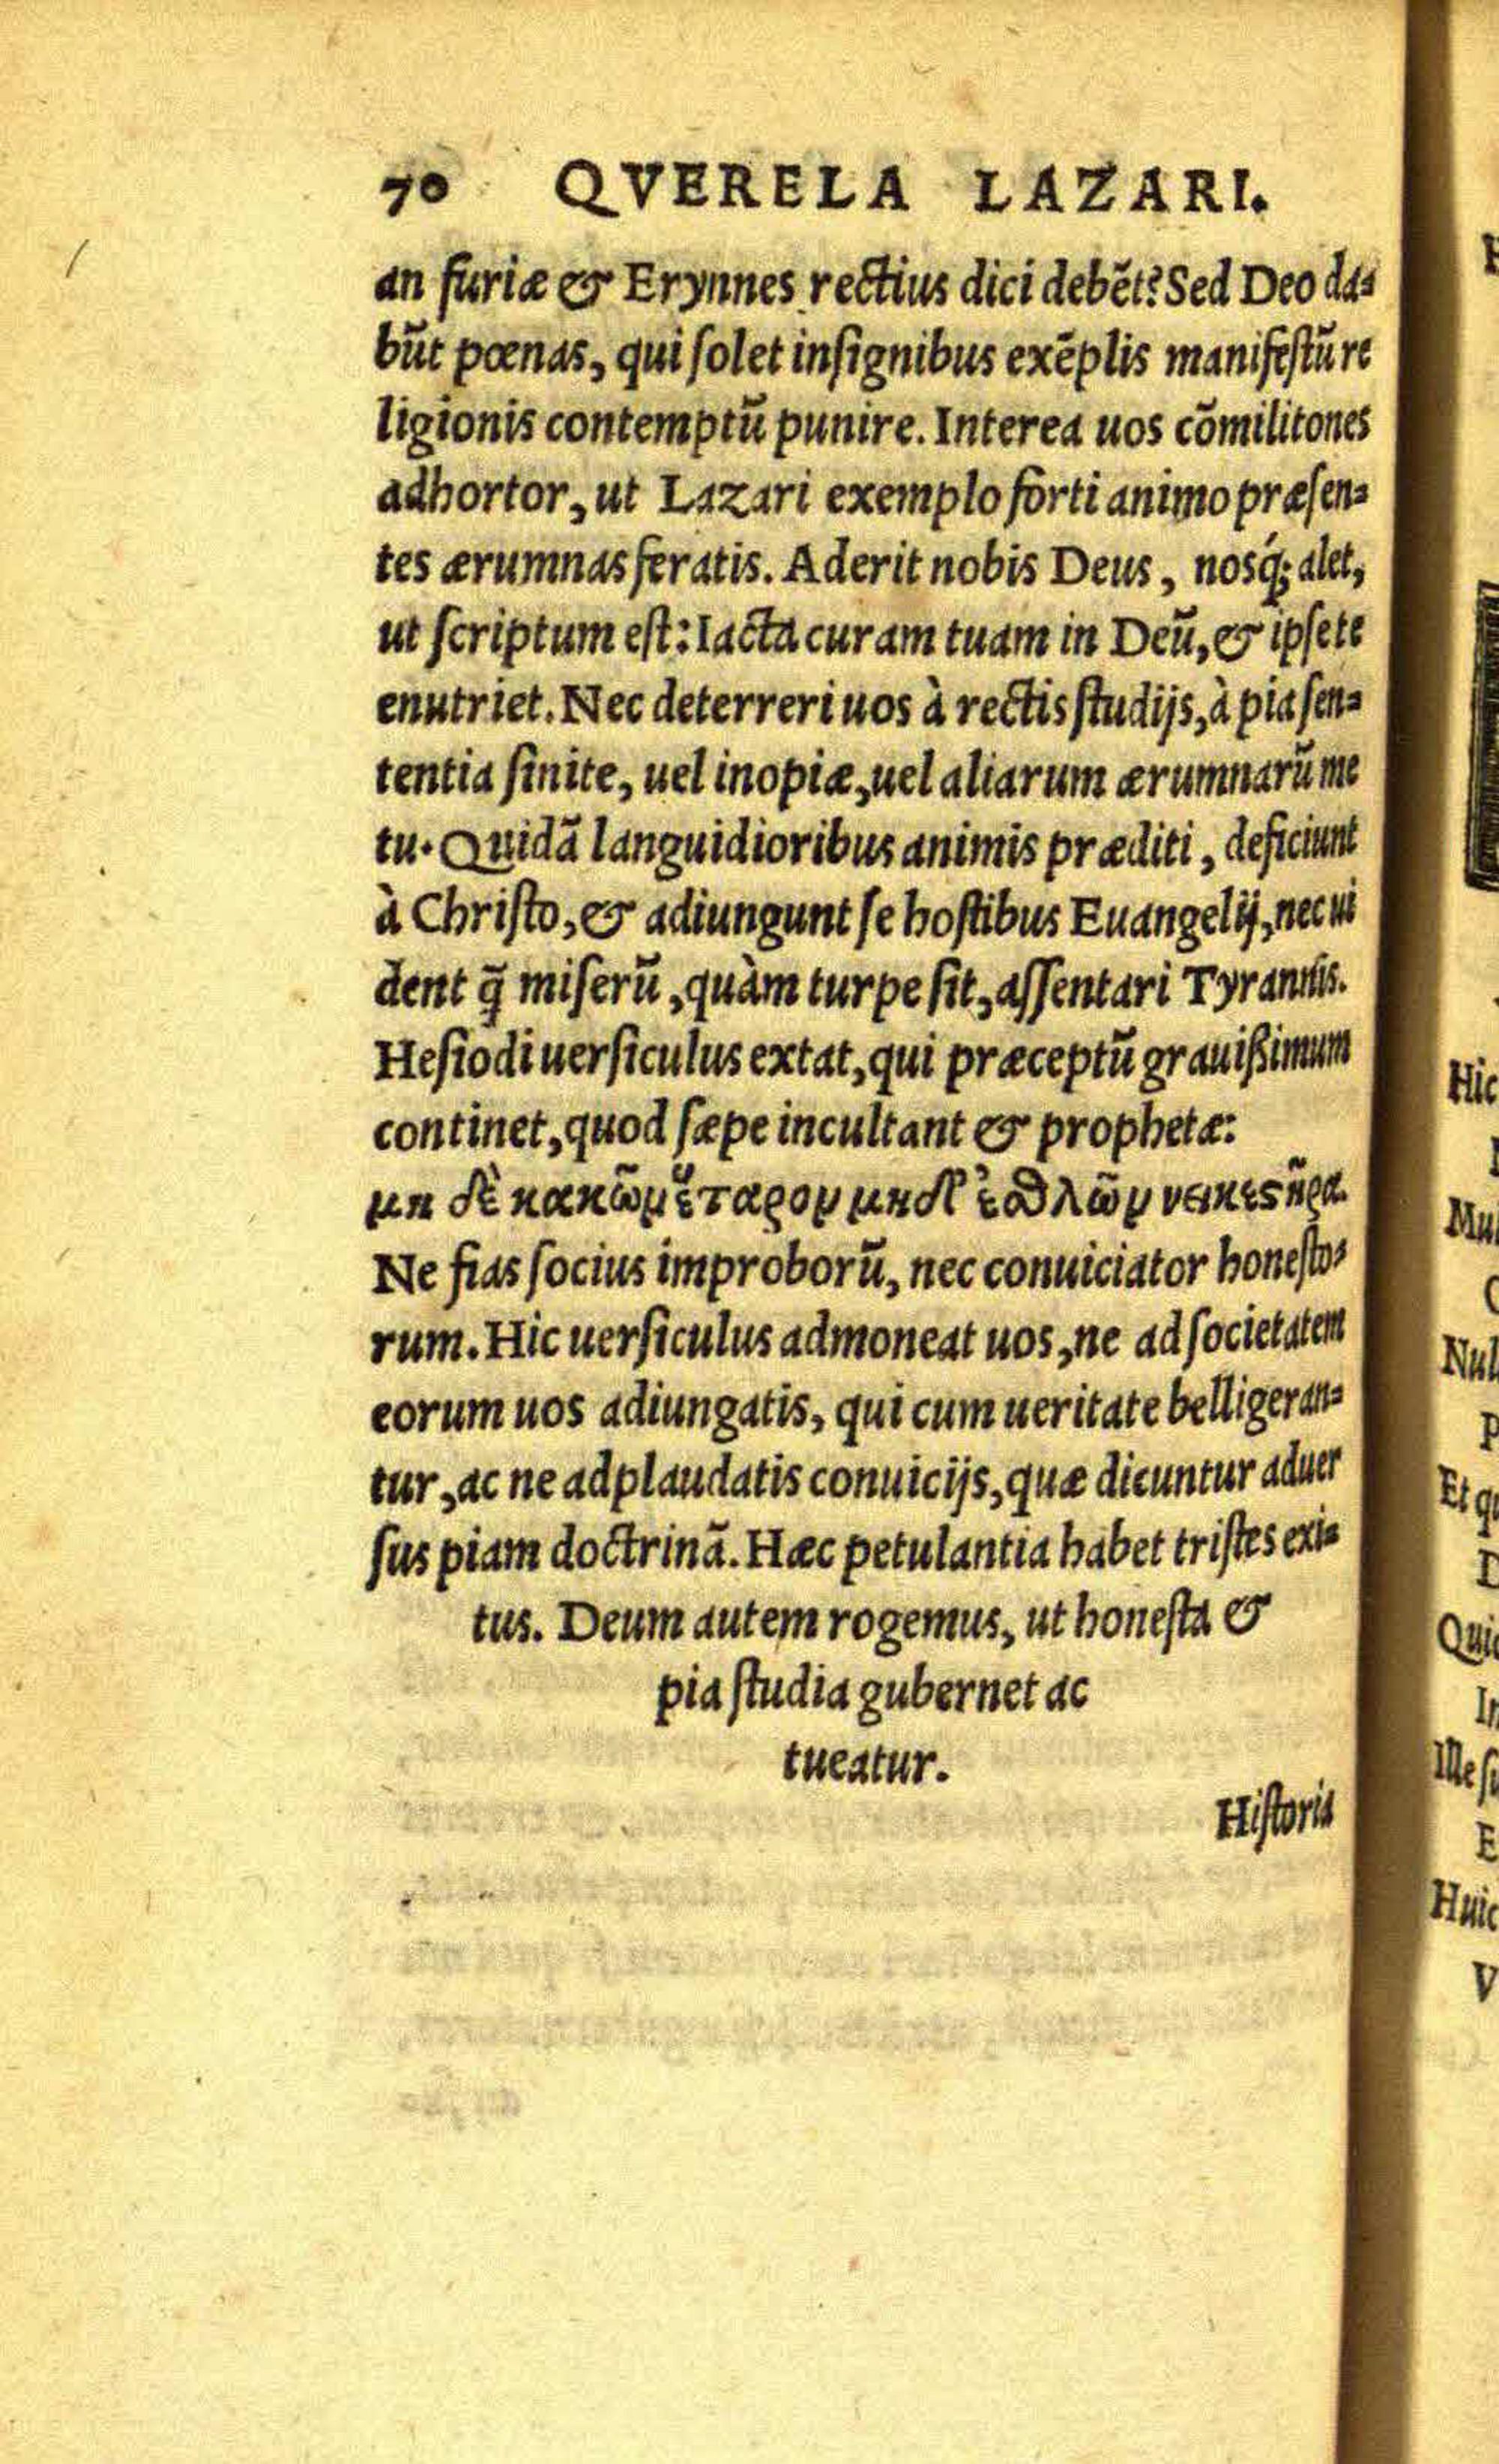 70 QVERELA LAZARI.
an furiæ & Erynnes rectius dici debẽt? Sed Deo da-
bũt pœnas, qui ſolet inſignibus exẽplis manifeſtũ re
ligionis contemptũ punire. Interea uos cõmilitones
adhortor, ut Lazari exemplo forti animo præſen-
tes ærumnas feratis. Aderit nobis Deus, nosq́; alet,
ut ſcriptum eſt: Iacta curam tuam in Deũ, & ipſe te
enutriet. Nec deterreri uos à rectis ſtudijs, à pia ſen-
tentia ſinite, uel inopiæ, uel aliarum ærumnarũ me
tu. Quidã languidioribus animis præditi, deficiunt
à Chriſto, & adiungunt ſe hoſtibus Euangelij, nec ui
dent q̃ miſerũ, quàm turpe ſit, aſſentari Tyrannis.
Heſiodi uerſiculus extat, qui præceptũ grauiſſimum
continet, quod ſæpe incultant & prophetæ:
μη δὲ κακῶμ ἕταρομ μηδ' ἐσθλῶμ νεικεστῆρα.
Ne fias ſocius improborũ, nec conuiciator honeſto-
rum. Hic uerſiculus admoneat uos, ne ad ſocietatem
eorum uos adiungatis, qui cum ueritate belligeran-
tur, ac ne adplaudatis conuicijs, quæ dicuntur aduer
ſus piam doctrinã. Hæc petulantia habet triſtes exi-
tus. Deum autem rogemus, ut honeſta &
pia ſtudia gubernet ac
tueatur.
Hiſtoria
Hic
Mul
Nul
P
Et qu
D
Quic
In
Ille ſu
E
Huic
V